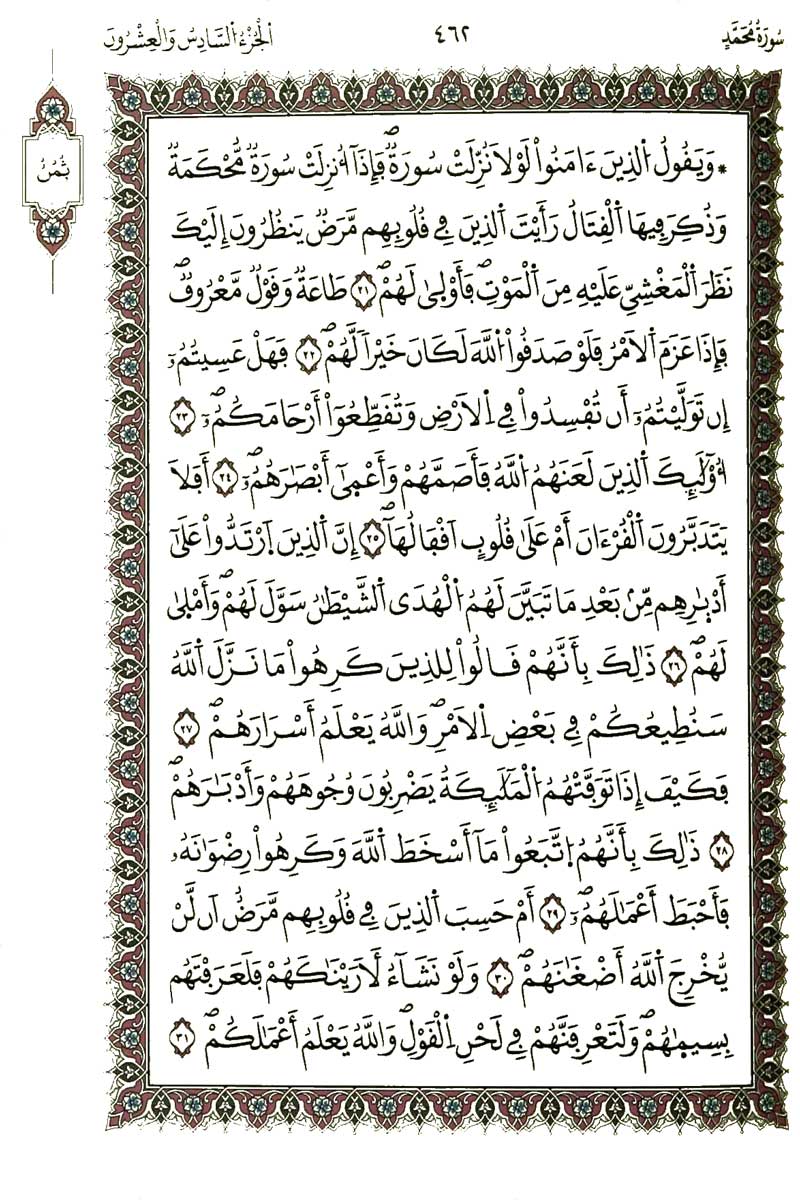 سُورَةُ مُحَمَّدٍ
٤٦٢
اَلْجُزْءُ اَلسَّادِسُ وَالْعِشْرُونَ
ثُمُنُ
* وَيَقُولُ اُلذِينَ ءَامَنُواْ لَوْلَا نُزِّلَتْ سُورَةٌۖ فَإِذَآ أُنزِلَتْ سُورَةٌ مُّحْكَمَةٌ
وَذُكِرَ فِيهَا اَلْقِتَالُ رَأَيْتَ اَلذِينَ فِے قُلُوبِهِم مَّرَضٌ يَنظُرُونَ إِلَيْكَ
نَظَرَ اَلْمَغْشِيِّ عَلَيْهِ مِنَ اَلْمَوْتِۖ فَأَوْلَىٰ لَهُمْۖ ٢١ طَاعَةٌ وَقَوْلٌ مَّعْرُوفٌۖ
فَإِذَا عَزَمَ اَلَامْرُ فَلَوْ صَدَقُواْ اُللَّهَ لَكَانَ خَيْراً لَّهُمْۖ ٢٢ فَهَلْ عَسِيتُمُۥٓ
إِن تَوَلَّيْتُمُۥٓ أَن تُفْسِدُواْ فِے اِلَارْضِ وَتُقَطِّعُوٓاْ أَرْحَامَكُمُۥٓۖ ٢٣
أُوْلَٰٓئِكَ اَلذِينَ لَعَنَهُمُ اُللَّهُ فَأَصَمَّهُمْ وَأَعْمَىٰٓ أَبْصَٰرَهُمُۥٓۖ ٢٤ أَفَلَا
يَتَدَبَّرُونَ اَلْقُرْءَانَ أَمْ عَلَىٰ قُلُوبٍ اَقْفَالُهَآۖ ٢٥ إِنَّ اَلذِينَ اَرْتَدُّواْ عَلَىٰٓ
أَدْبَٰرِهِم مِّنۢ بَعْدِ مَا تَبَيَّنَ لَهُمُ اُلْهُدَى اَلشَّيْطَٰنُ سَوَّلَ لَهُمْ وَأَمْلَىٰ
لَهُمْۖ ٢٦ ذَٰلِكَ بِأَنَّهُمْ قَالُواْ لِلذِينَ كَرِهُواْ مَا نَزَّلَ اَللَّهُ
سَنُطِيعُكُمْ فِے بَعْضِ اِلَامْرِۖ وَاللَّهُ يَعْلَمُ أَسْرَارَهُمْۖ ٢٧
فَكَيْفَ إِذَا تَوَفَّتْهُمُ اُلْمَلَٰٓئِكَةُ يَضْرِبُونَ وُجُوهَهُمْ وَأَدْبَٰرَهُمْۖ
٢٨ ذَٰلِكَ بِأَنَّهُمُ اُتَّبَعُواْ مَآ أَسْخَطَ اَللَّهَ وَكَرِهُواْ رِضْوَٰنَهُۥ
فَأَحْبَطَ أَعْمَٰلَهُمُۥٓۖ ٢٩ أَمْ حَسِبَ اَلذِينَ فِے قُلُوبِهِم مَّرَضٌ اَن لَّنْ
يُّخْرِجَ اَللَّهُ أَضْغَٰنَهُمْۖ ٣٠ وَلَوْ نَشَآءُ لَأَرَيْنَٰكَهُمْ فَلَعَرَفْتَهُم
بِسِيمَٰهُمْۖ وَلَتَعْرِفَنَّهُمْ فِے لَحْنِ اِلْقَوْلِۖ وَاللَّهُ يَعْلَمُ أَعْمَٰلَكُمْۖ ٣١